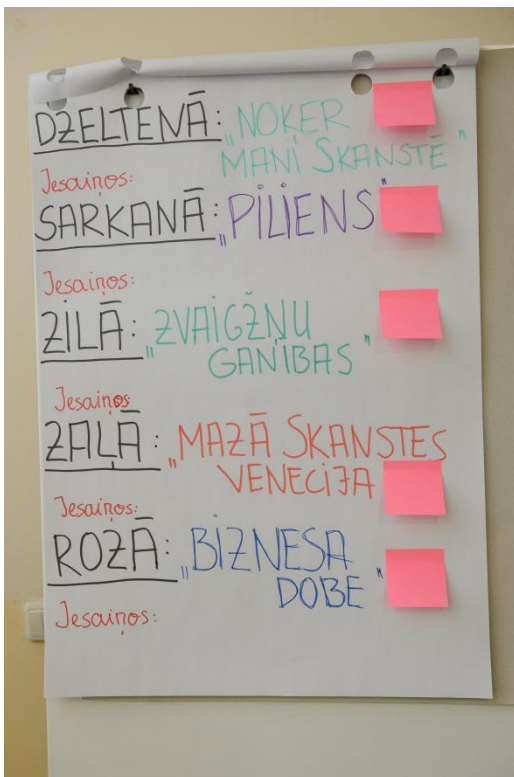 DZELTENĀ: „NOĶER
MANI SKANSTĒ"
Iesaiņos:
SARKANĀ: „PILIENS"
Iesaiņos:
ZILĀ: „ZVAIGŽŅU
GANĪBAS"
Iesaiņos
ZAĻĀ: „MAZĀ SKANSTES
VENĒCIJA
Iesaiņos:
ROZĀ: „BIZNESA
DOBE"
Iesaiņos: